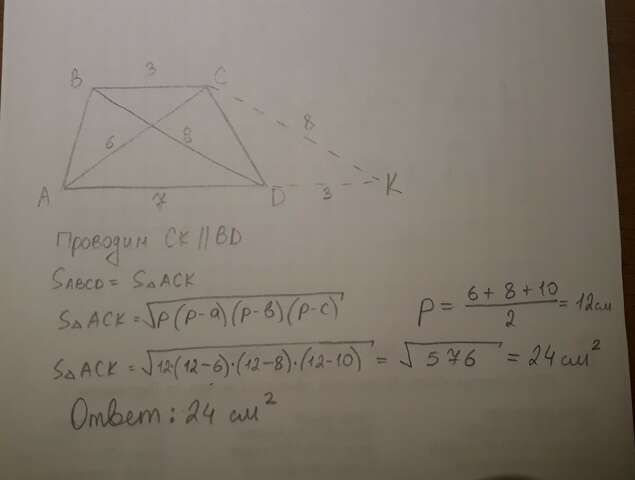 3
B C
6 8 8
A 7 D 3 K
Проводим CK || BD
SABCD = S△ACK
S△ACK = √p(p-a)(p-в)(p-c)
P = 6+8+10 / 2 = 12 см
S△ACK = √12·(12-6)·(12-8)·(12-10) = √576 = 24 см²
Ответ: 24 см²